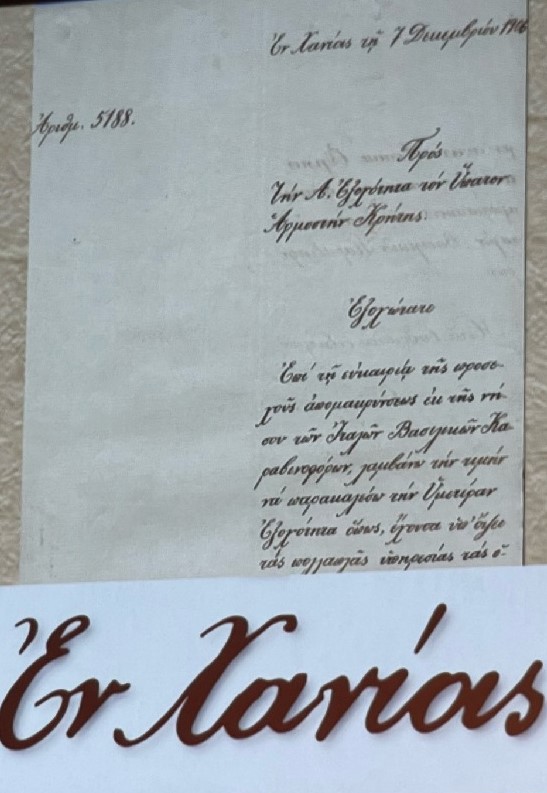 Ἐν Χανίοις τῇ 7 Δεκεμβρίου 1906
Ἀριθμ. 5188.
Πρός
Τὴν Α. Ἐξοχότητα τὸν Ὕπατον
Ἁρμοστὴν Κρήτης.
Ἐξοχώτατε
Ἐπὶ τῇ εὐκαιρίᾳ τῆς προσε-
χοῦς ἀπομακρύνσεως ἐκ τῆς νή-
σου τῶν Ἰταλῶν Βασιλικῶν Κα-
ραβινοφόρων, λαμβάνω τὴν τιμὴν
νὰ παρακαλέσω τὴν Ὑμετέραν
Ἐξοχότητα ὅπως, ἔχουσα ὑπ' ὄψει
τὰς πολλαπλᾶς ὑπηρεσίας τὰς ὁ-
Ἐν Χανίοις